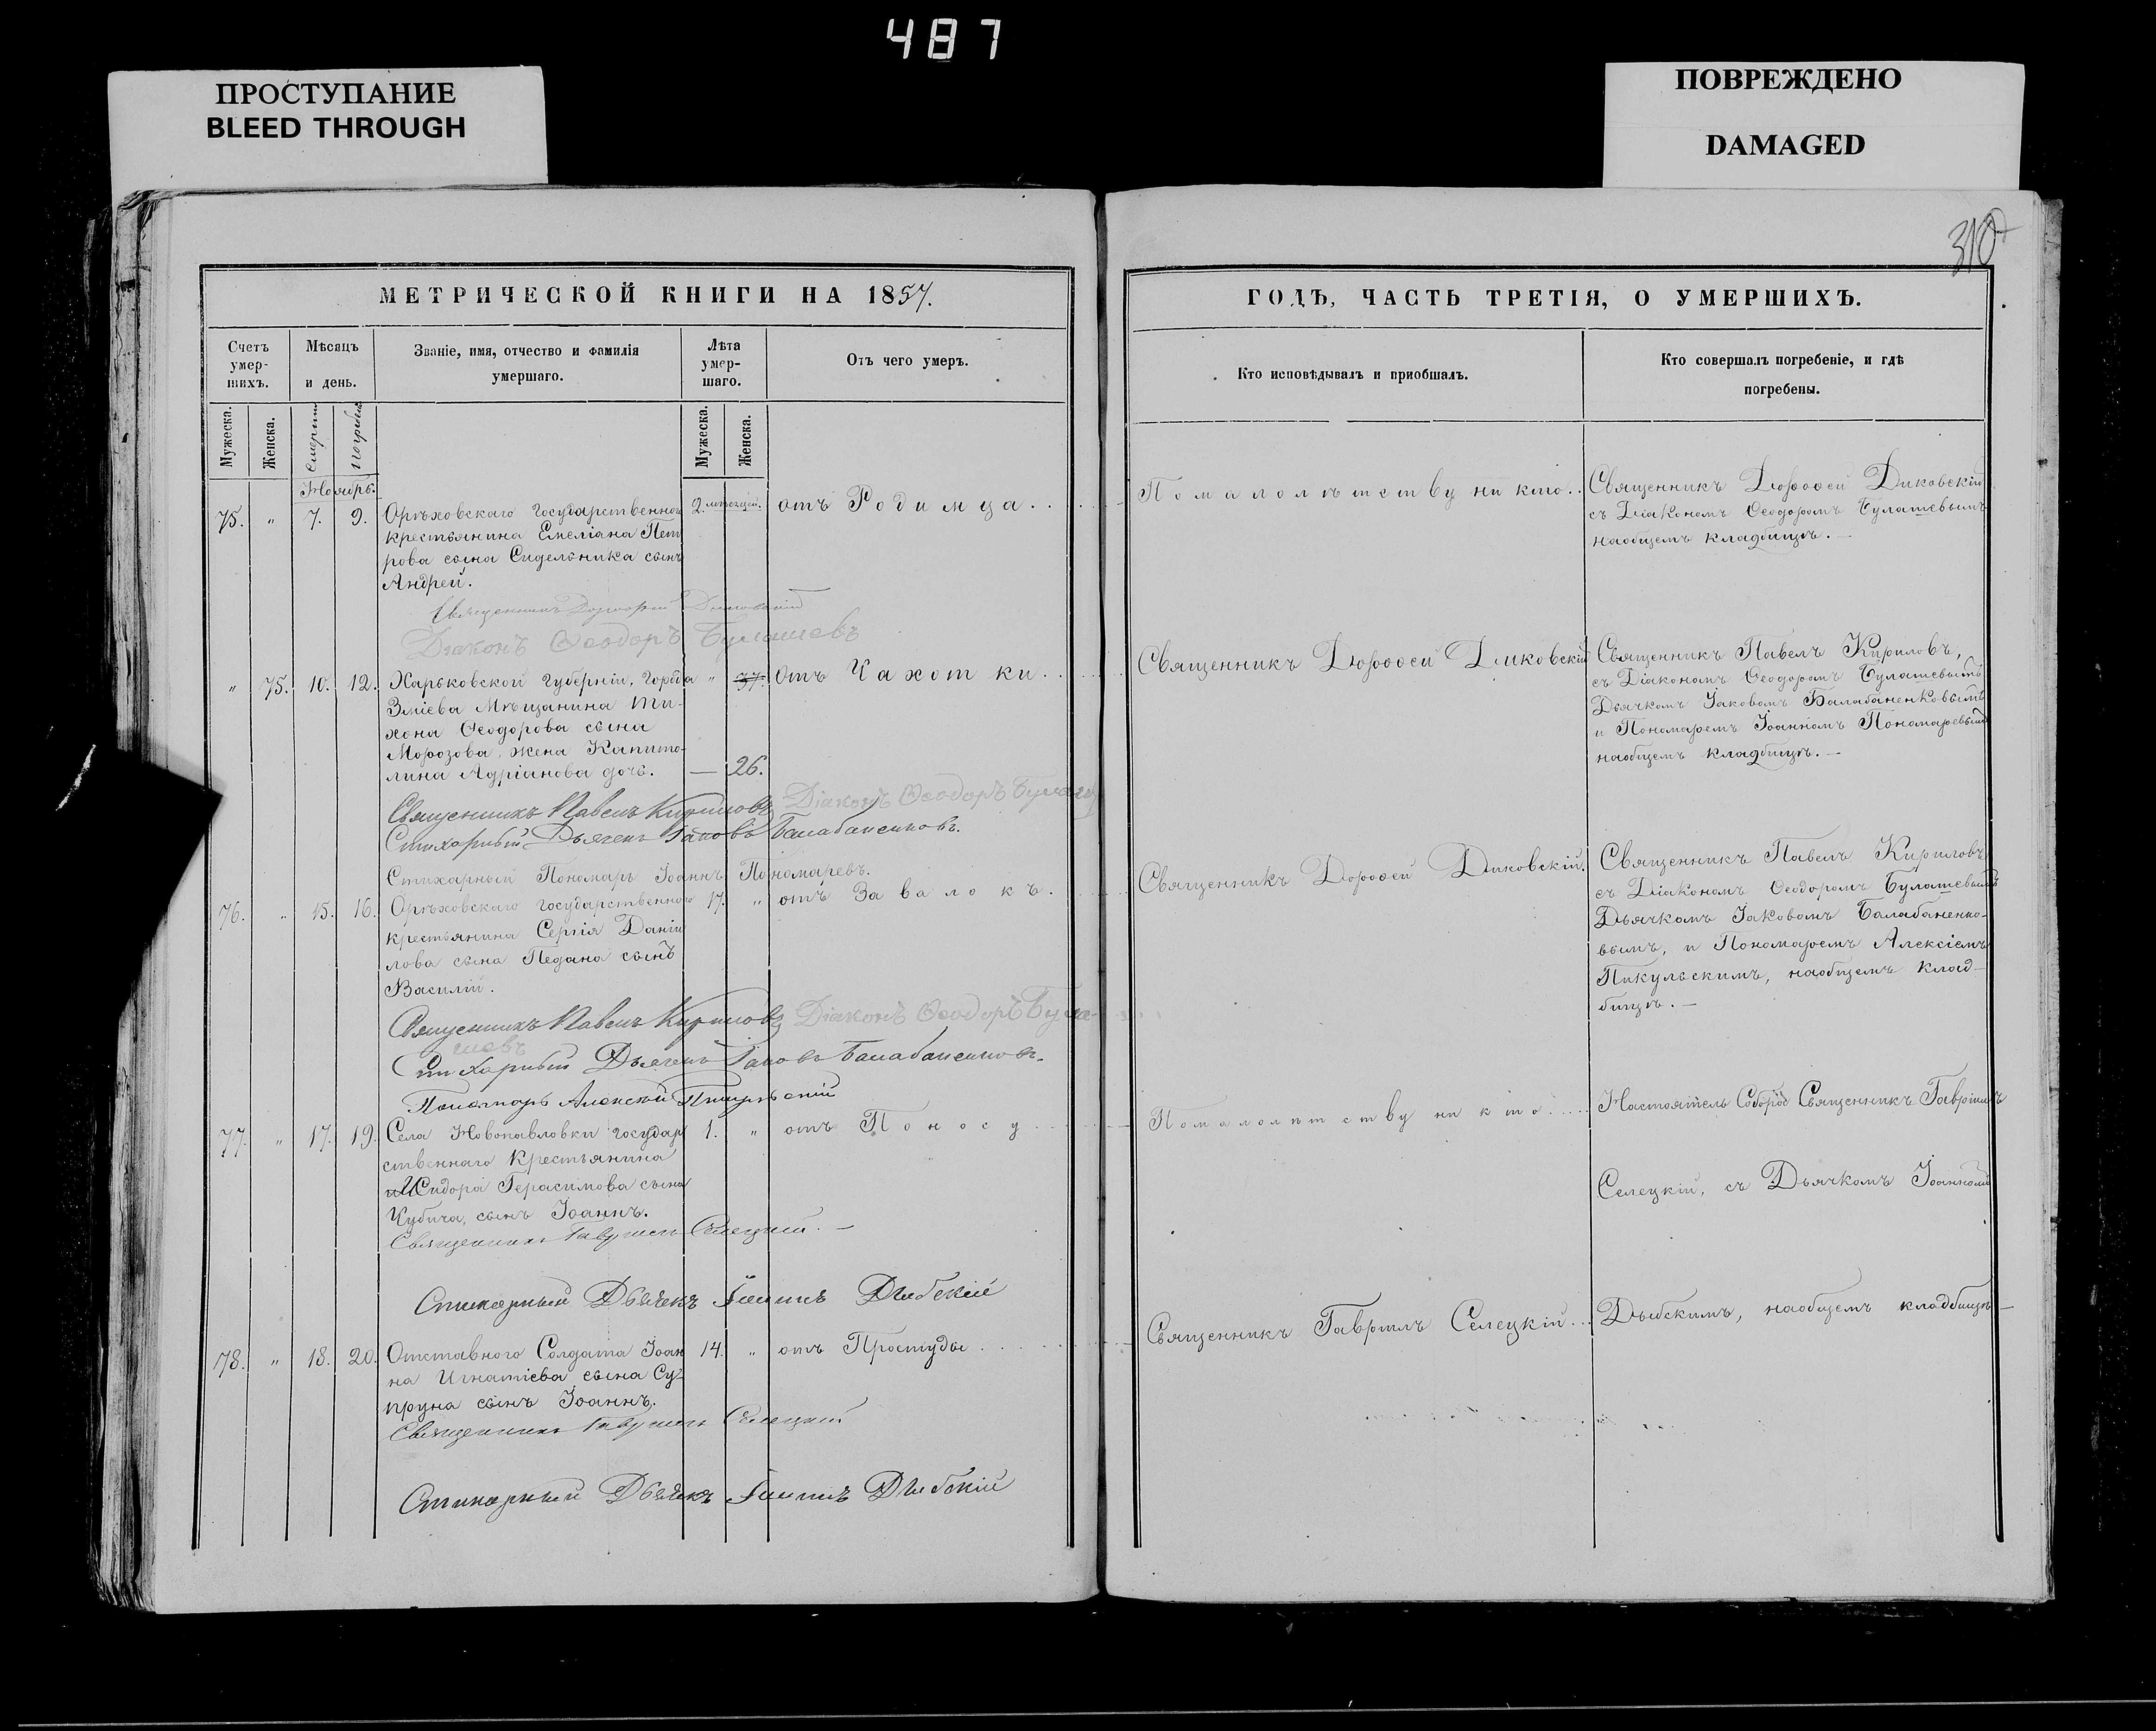 487
ПРОСТУПАНИЕ
BLEED THROUGH
ПОВРЕЖДЕНО
DAMAGED
310
МЕТРИЧЕСКОЙ КНИГИ НА 1857.
Счетъ умер-шихъ.
Мѣсяцъ и день.
Званіе, имя, отчество и фамилія умершаго.
Лѣта умер-шаго.
Отъ чего умеръ.
Мужеска.
Женска.
смерти
погребен.
Мужеска.
Женска.
Ноябрь.
75. " 7. 9. Орѣховскаго государственнаго 2. мѣсяцей. отъ Родимца...
крестьянина Емеліана Пет
рова сына Сидельника сынъ
Андрей.
Священникъ Дорофей Диковскій
Діаконъ Ѳеодоръ Булашевъ
" 75. 10. 12. Харьковской губерніи, города " 37. Отъ Чахотки..
Зміева Мѣщанина Ти-
хона Ѳеодорова сына
Морозова, жена Капито-
лина Адріанова дочь. — 26.
Священникъ Павелъ Кириловъ Діаконъ Ѳеодоръ Булаш
Стихарный Дьячекъ Іаковъ Балабаненковъ.
Стихарный Пономарь Іоаннъ Пономаревъ.
76. " 15. 16. Орѣховскаго государственнаго 17. " отъ Завалокъ.
крестьянина Сергія Даніи
лова сына Педана сынъ
Василій.
Священникъ Павелъ Кириловъ Діаконъ Ѳеодоръ Була-
шевъ
Стихарный Дьячекъ Іаковъ Балабаненковъ.
Пономарь Алексій Пикульскій
77. " 17. 19. Села Новопавловки государ 1. " отъ Поносу...
ственнаго крестьянина
Исидора Герасимова сына
сынъ Іоаннъ.
Священникъ Гавриилъ Селецкій. —
Стихарный Дьячекъ Іоаннъ Дыбскій
78. " 18. 20. Отставного Солдата Іоан 14. " отъ Простуды....
на Игнатіева сына Су-
пруна сынъ Іоаннъ.
Священникъ Гавриилъ Селецкій
Стихарный Дьячекъ Іоаннъ Дыбскій
ГОДЪ, ЧАСТЬ ТРЕТІЯ, О УМЕРШИХЪ.
Кто исповѣдывалъ и приобщалъ.
Кто совершалъ погребеніе, и гдѣ погребены.
Помалолѣтству никто.. Священникъ Дорофей Диковскій
съ Діакономъ Ѳеодоромъ Булашевымъ
наобщемъ кладбищѣ.—
Священникъ Дорофей Диковскій Священникъ Павелъ Кириловъ,
съ Діакономъ Ѳеодоромъ Булашевымъ
Дьячкомъ Іаковомъ Балабаненковымъ
и Пономаремъ Іоанномъ Пономаревымъ
наобщемъ кладбищѣ.—
Священникъ Дорофей Диковскій. Священникъ Павелъ Кириловъ
съ Діакономъ Ѳеодоромъ Булашевымъ
Дьячкомъ Іаковомъ Балабаненко-
вымъ, и Пономаремъ Алексіемъ
Пикульскимъ, наобщемъ клад-
бищѣ.—
Помалолѣтству никто..... Настоятель Священникъ Гавріилъ
Селецкій, съ Дьячкомъ Іоанномъ
Священникъ Гавріилъ Селецкій... Дыбскимъ, наобщемъ кладбищѣ—